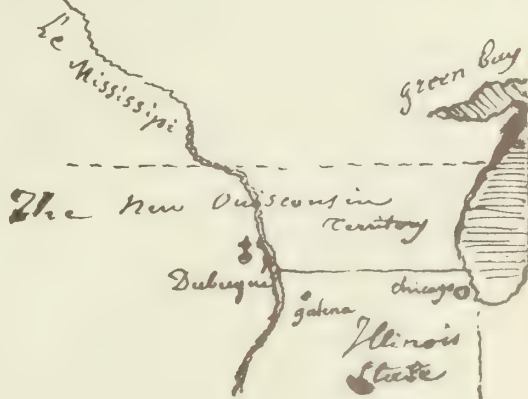 Le
Mississipi
green bay
The New Ouisconsin
Territory
Dubuque
galena
chicago
Illinois
State